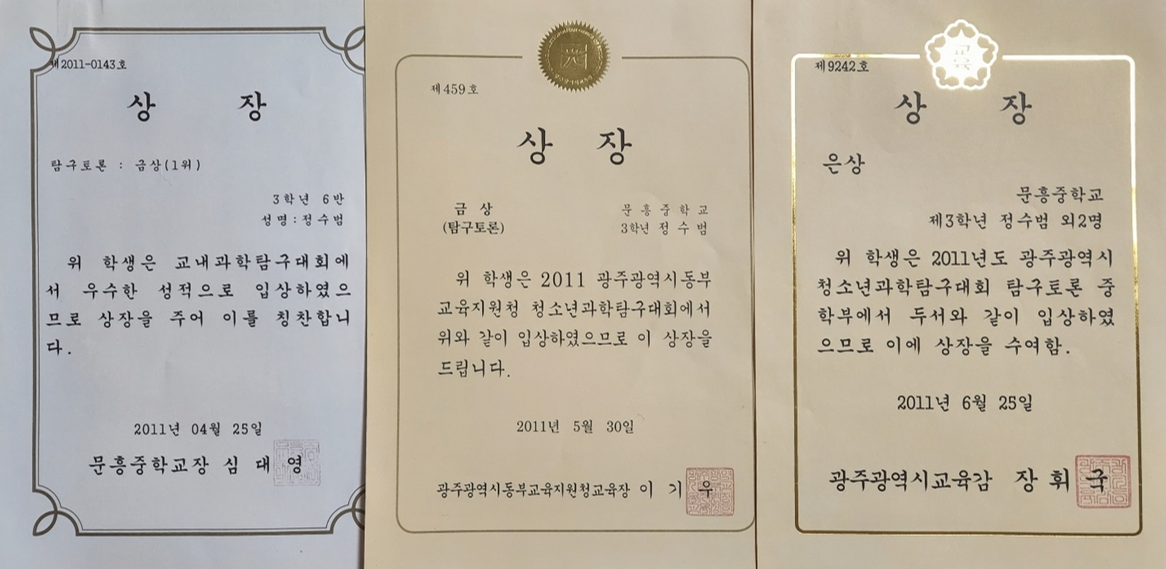 제2011-0143호
상 장
탐구토론 : 금상(1위)
3학년 6반
성명:정수범
위 학생은 교내과학탐구대회에
서 우수한 성적으로 입상하였으
므로 상장을 주어 이를 칭찬합니
다.
2011년 04월 25일
문흥중학교장 심 대 영
제459호
상 장
금 상
(탐구토론)
문 흥 중 학 교
3학년 정 수 범
위 학생은 2011 광주광역시동부
교육지원청 청소년과학탐구대회에서
위와 같이 입상하였으므로 이 상장을
드립니다.
2011년 5월 30일
광주광역시동부교육지원청교육장 이 기 우
제9242호
교육
상 장
은상
문흥중학교
제3학년 정수범 외2명
위 학생은 2011년도 광주광역시
청소년과학탐구대회 탐구토론 중
학부에서 두서와 같이 입상하였
으므로 이에 상장을 수여함.
2011년 6월 25일
광주광역시교육감 장 휘 국